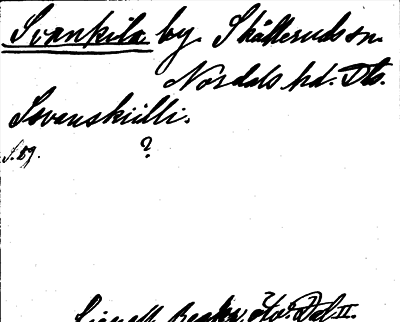 Svankila by. Skållerud sn.
Nordals hd. Dls.
Svanskiilli.
S. 89. ?
Lignell Beskr. öv. Dal II.